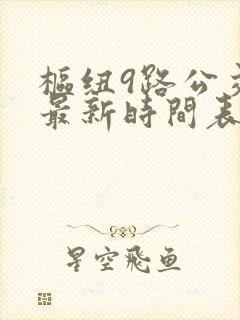 樞紐9路公交
最新時間表
星空飛鱼